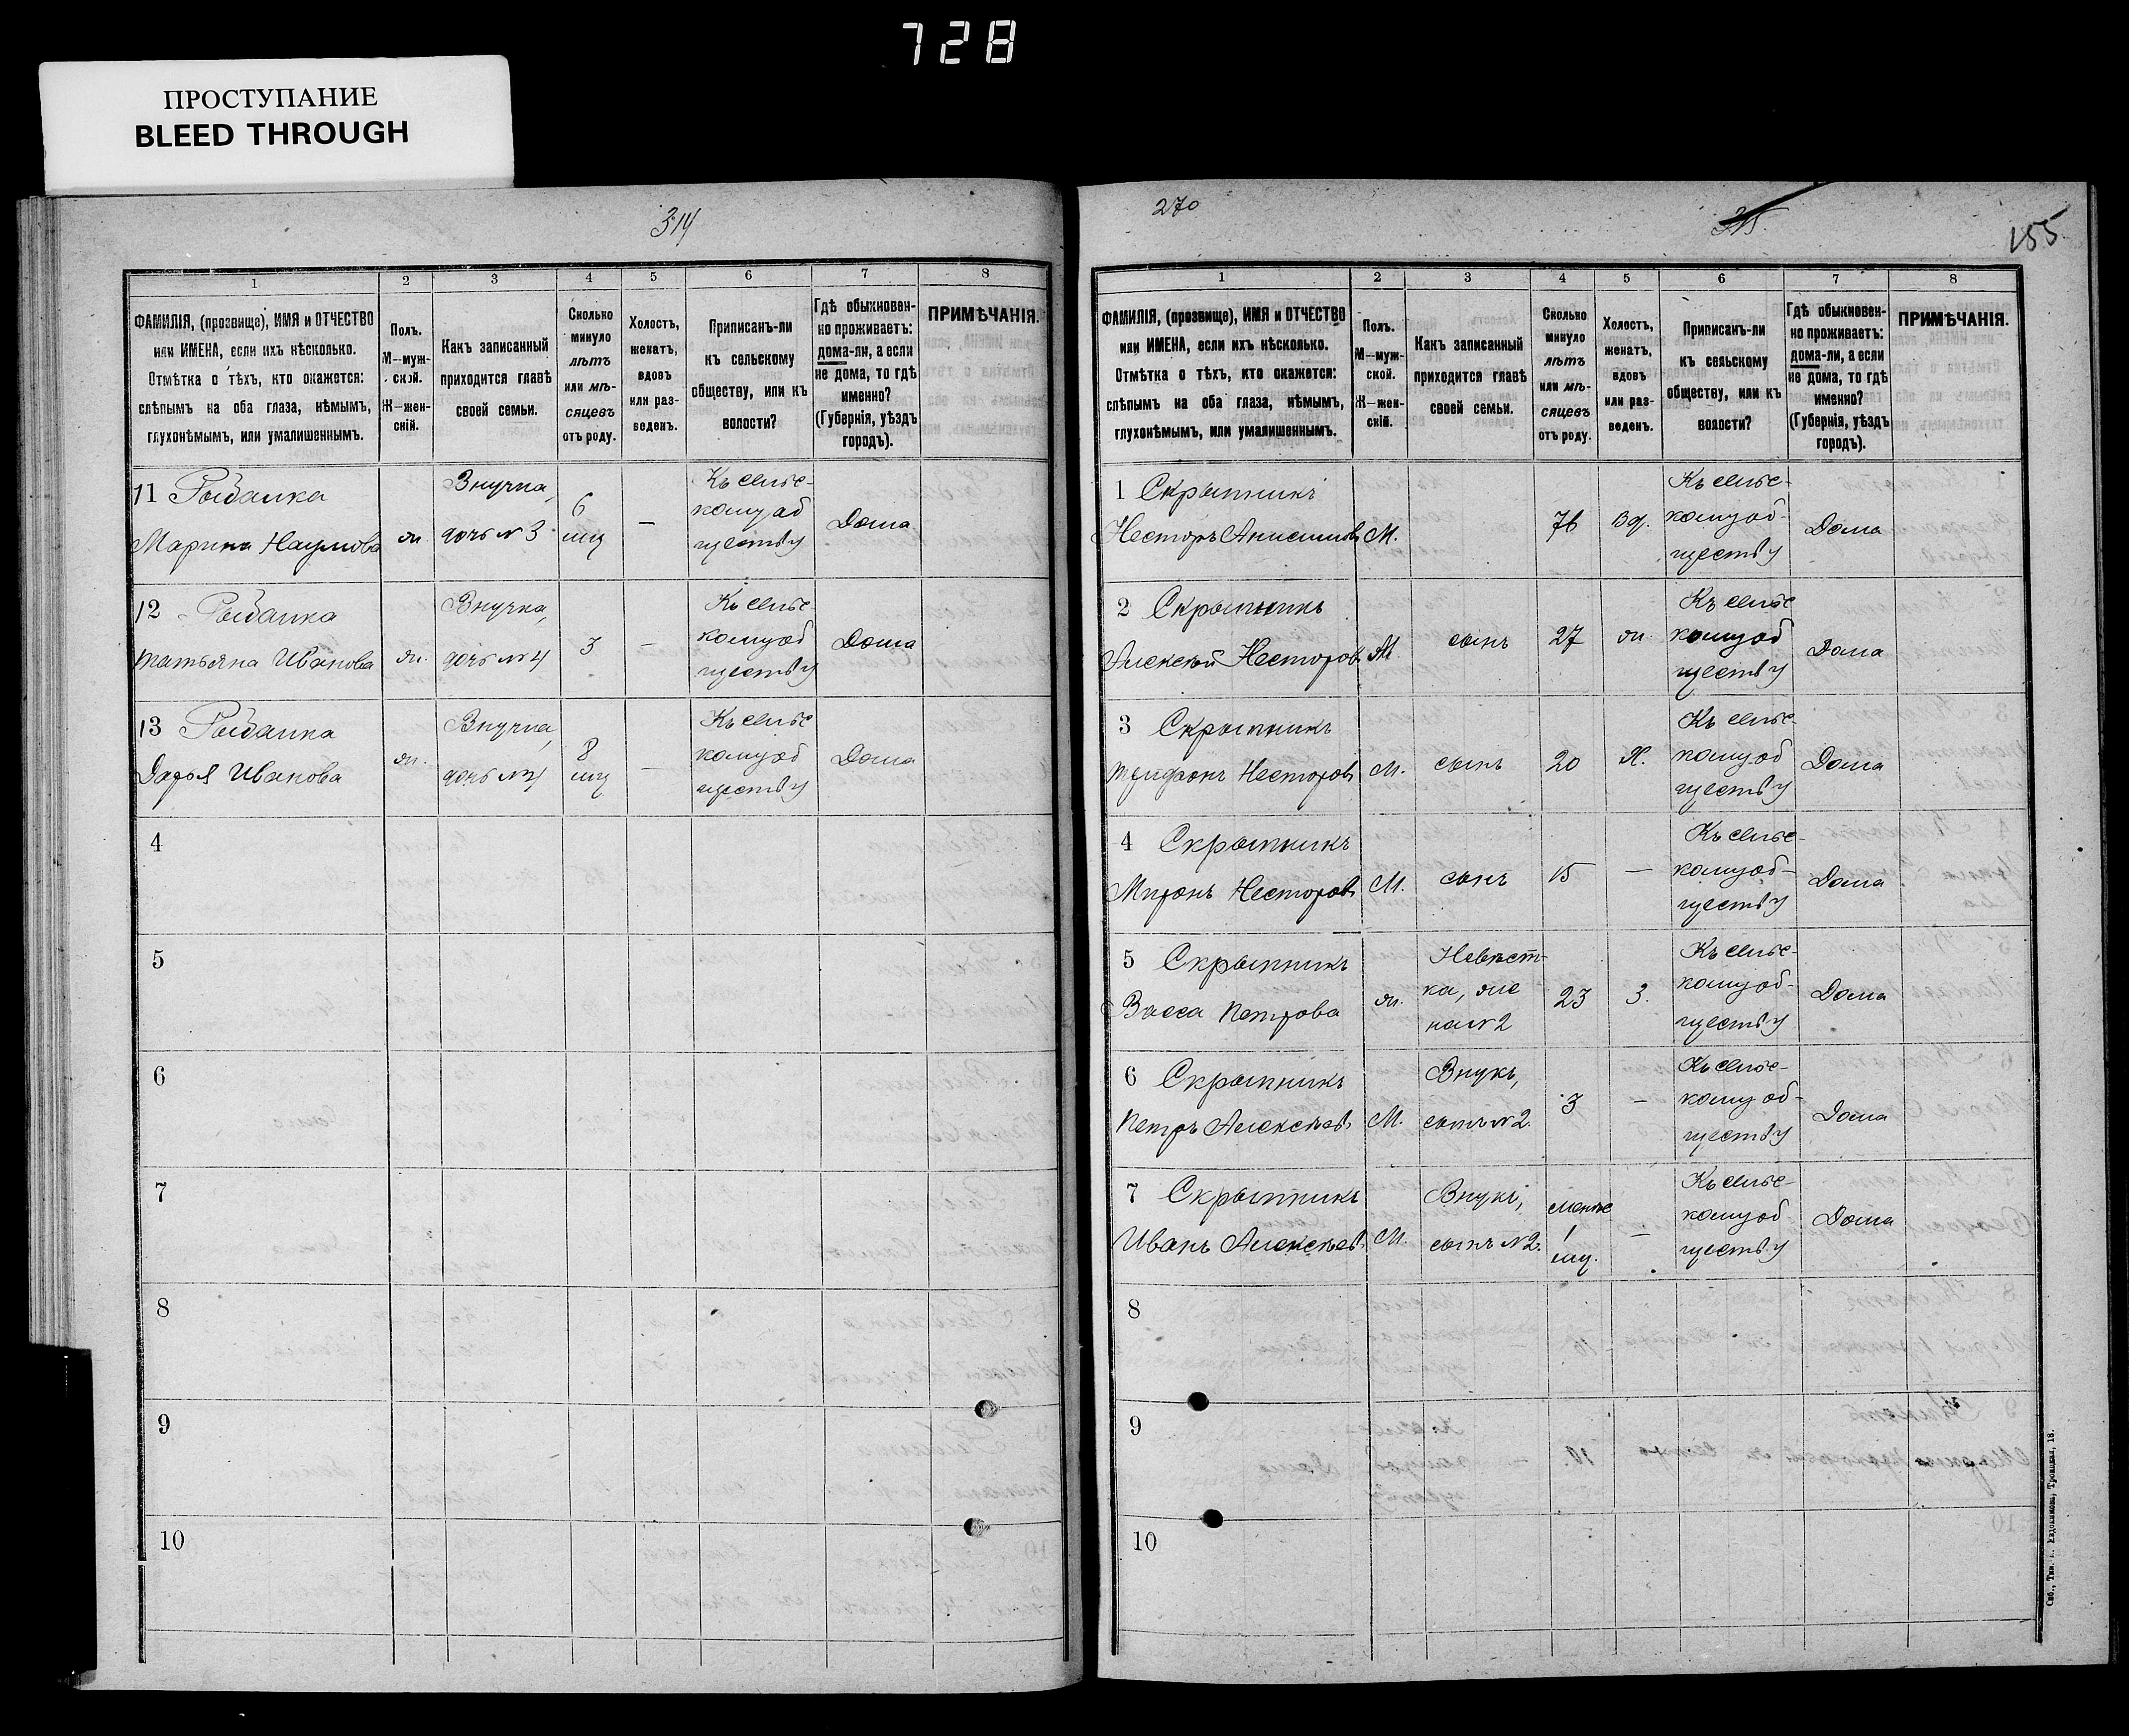 728
ПРОСТУПАНИЕ
BLEED THROUGH
314
1
2
3
4
5
6
7
8
ФАМИЛІЯ, (прозвище), ИМЯ и ОТЧЕСТВО
или ИМЕНА, если ихъ нѣсколько.
Отмѣтка о тѣхъ, кто окажется:
слѣпымъ на оба глаза, нѣмымъ,
глухонѣмымъ, или умалишеннымъ.
Полъ.
М—муж-
ской.
Ж—жен-
скій.
Какъ записанный
приходится главѣ
своей семьи.
Сколько
минуло
лѣтъ
или мѣ-
сяцевъ
отъ роду.
Холостъ,
женатъ,
вдовъ
или раз-
веденъ.
Приписанъ-ли
къ сельскому
обществу, или къ
волости?
Гдѣ обыкновен-
но проживаетъ:
дома-ли, а если
не дома, то гдѣ
именно?
(Губернія, уѣздъ
городъ).
ПРИМѢЧАНІЯ.
11 Рыбалка
Марина Наумова
ж
Внучка,
дочь № 3
6
мц
—
Къ сельс-
кому об
ществу
Дома
12 Рыбалка
Татьяна Иванова
ж.
Внучка,
дочь № 4
3
—
Къ сельс-
кому об
ществу
Дома
13 Рыбалка
Дарья Иванова
ж.
Внучка,
дочь № 4
8
мц
—
Къ сельс
кому об
ществу
Дома
4
5
6
7
8
9
10
270
315.
155
1
2
3
4
5
6
7
8
ФАМИЛІЯ, (прозвище), ИМЯ и ОТЧЕСТВО
или ИМЕНА, если ихъ нѣсколько.
Отмѣтка о тѣхъ, кто окажется:
слѣпымъ на оба глаза, нѣмымъ,
глухонѣмымъ, или умалишеннымъ.
Полъ.
М—муж-
ской.
Ж—жен-
скій.
Какъ записанный
приходится главѣ
своей семьи.
Сколько
минуло
лѣтъ
или мѣ-
сяцевъ
отъ роду.
Холостъ,
женатъ,
вдовъ
или раз-
веденъ.
Приписанъ-ли
къ сельскому
обществу, или къ
волости?
Гдѣ обыкновен-
но проживаетъ:
дома-ли, а если
не дома, то гдѣ
именно?
(Губернія, уѣздъ
городъ).
ПРИМѢЧАНІЯ.
1 Скрыпникъ
Несторъ Анисимовъ
М.
вд.
Къ сельс-
кому об-
ществу
Дома
2 Скрыпникъ
Алексѣй Несторовъ
М.
сынъ
27
ж.
Къ сельс
кому об
ществу
Дома
3 Скрыпникъ
Несторовъ
М.
сынъ
20
Х.
Къ сельс-
кому об
ществу
Дома
4 Скрыпникъ
Миронъ Несторовъ
М.
сынъ
15
—
Къ сельс-
кому об-
ществу
Дома
5 Скрыпникъ
Васса Петрова
ж.
Невѣст-
ка, же
на № 2
23
З.
Къ сельс-
кому об-
ществу
Дома
6 Скрыпникъ
Петръ Алексѣевъ
М.
Внукъ,
сынъ № 2.
3
—
Къ сельс-
кому об-
ществу
Дома
7 Скрыпникъ
Иванъ Алексѣевъ
М.
Внукъ,
сынъ № 2.
менѣе
1
мц.
—
Къ сельс-
кому об
ществу
Дома
8
9
10
Спб., Тип. Евдокимова, Троицкая, 18.